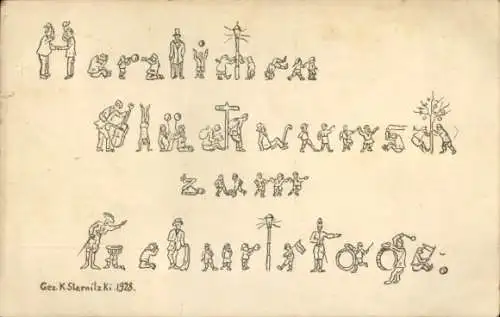 Herzlichen
Glückwunsch
zum
Geburtstage.
Gez. K. Sternitzki. 1928.